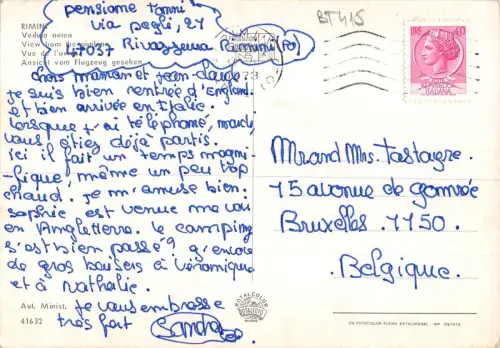 pensione tommi
via pegli, 27
47037 Rivazzurra Rimini (Fo)
BT415
RIMINI
Veduta aerea
View from the airplane
Vue de l'avion
Ansicht vom Flugzeug gesehen
LIRE 40
ITALIANA
chers maman et jean-claude
je suis bien rentrée d'England
et bien arrivée en Italie.
Lorsque j'ai téléphoné, mardi,
vous étiez déjà partis.
ici il fait un temps magni-
fique, même un peu trop
chaud. je m'amuse bien.
sophie est venue me voir
en Angleterre. le camping
s'est bien passé? j'envoie
de gros baisers à véronique
et à nathalie.
je vous embrasse
très fort Sandra
Aut. Minist.
41632
Mr and Mrs Tastayre.
15 avenue de
Bruxelles. 1150.
Belgique.
ROTALCOLOR
ROTALFOTO
DA FOTOCOLOR KODAK EKTACHROME - RIP. VIETATA